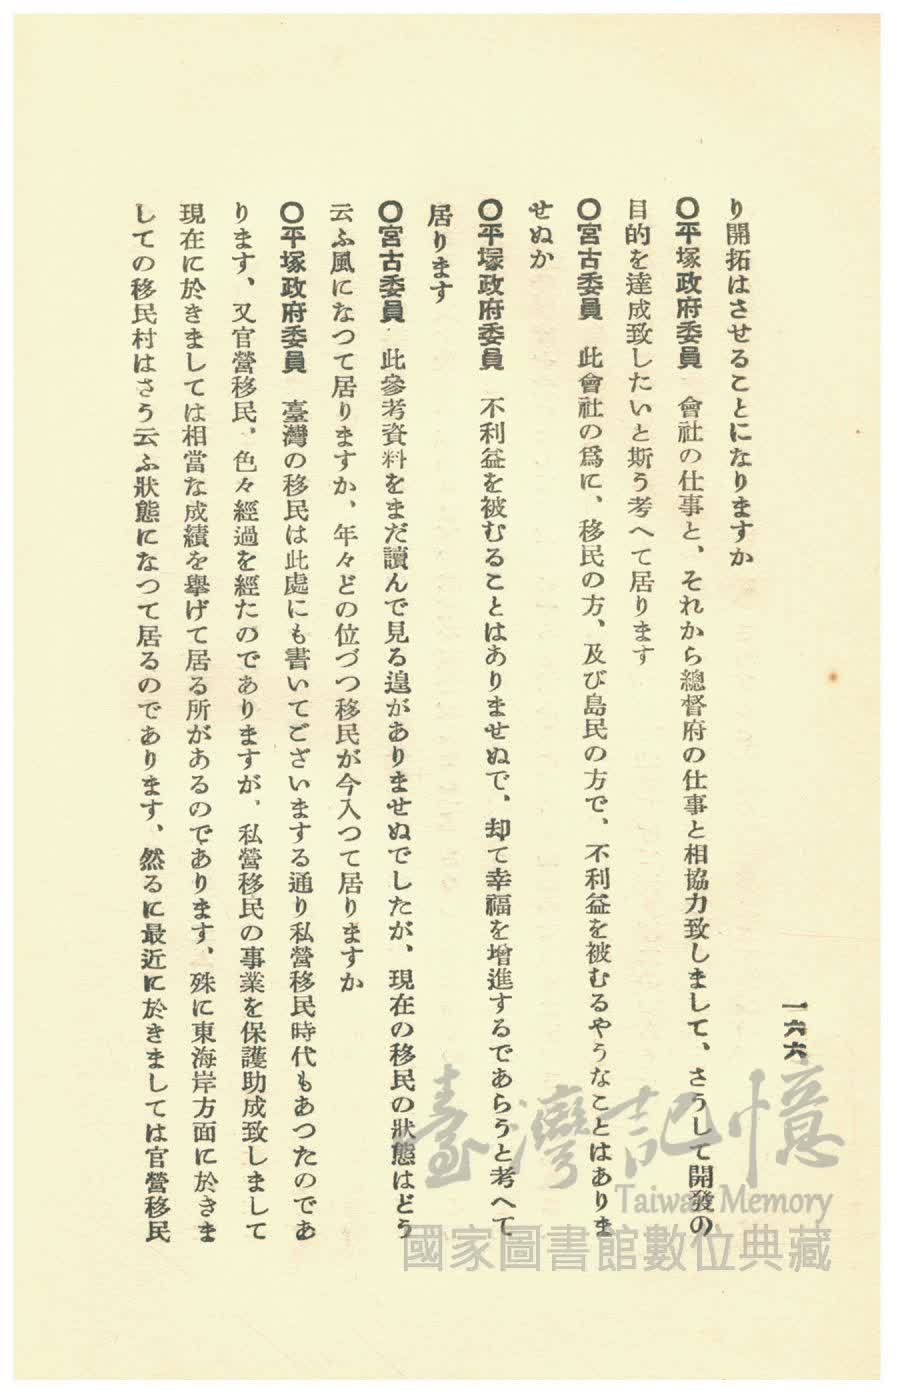 一六六
り開拓はさせることになりますか
〇平塚政府委員　會社の仕事と、それから總督府の仕事と相協力致しまして、さうして開發の
目的を達成致したいと斯う考へて居ります
〇宮古委員　此會社の爲に、移民の方、及び島民の方で、不利益を被むるやうなことはありま
せぬか
〇平塚政府委員　不利益を被むることはありませぬで、却て幸福を增進するであらうと考へて
居ります
〇宮古委員　此參考資料をまだ讀んで見る遑がありませぬでしたが、現在の移民の狀態はどう
云ふ風になつて居りますか、年々どの位づつ移民が今入つて居りますか
〇平塚政府委員　臺灣の移民は此處にも書いてございまする通り私營移民時代もあつたのであ
ります、又官營移民、色々經過を經たのでありますが、私營移民の事業を保護助成致しまして
現在に於きましては相當な成績を擧げて居る所があるのであります、殊に東海岸方面に於きま
しての移民村はさう云ふ狀態になつて居るのであります、然るに最近に於きましては官營移民
臺灣記憶
Taiwan Memory
國家圖書館數位典藏